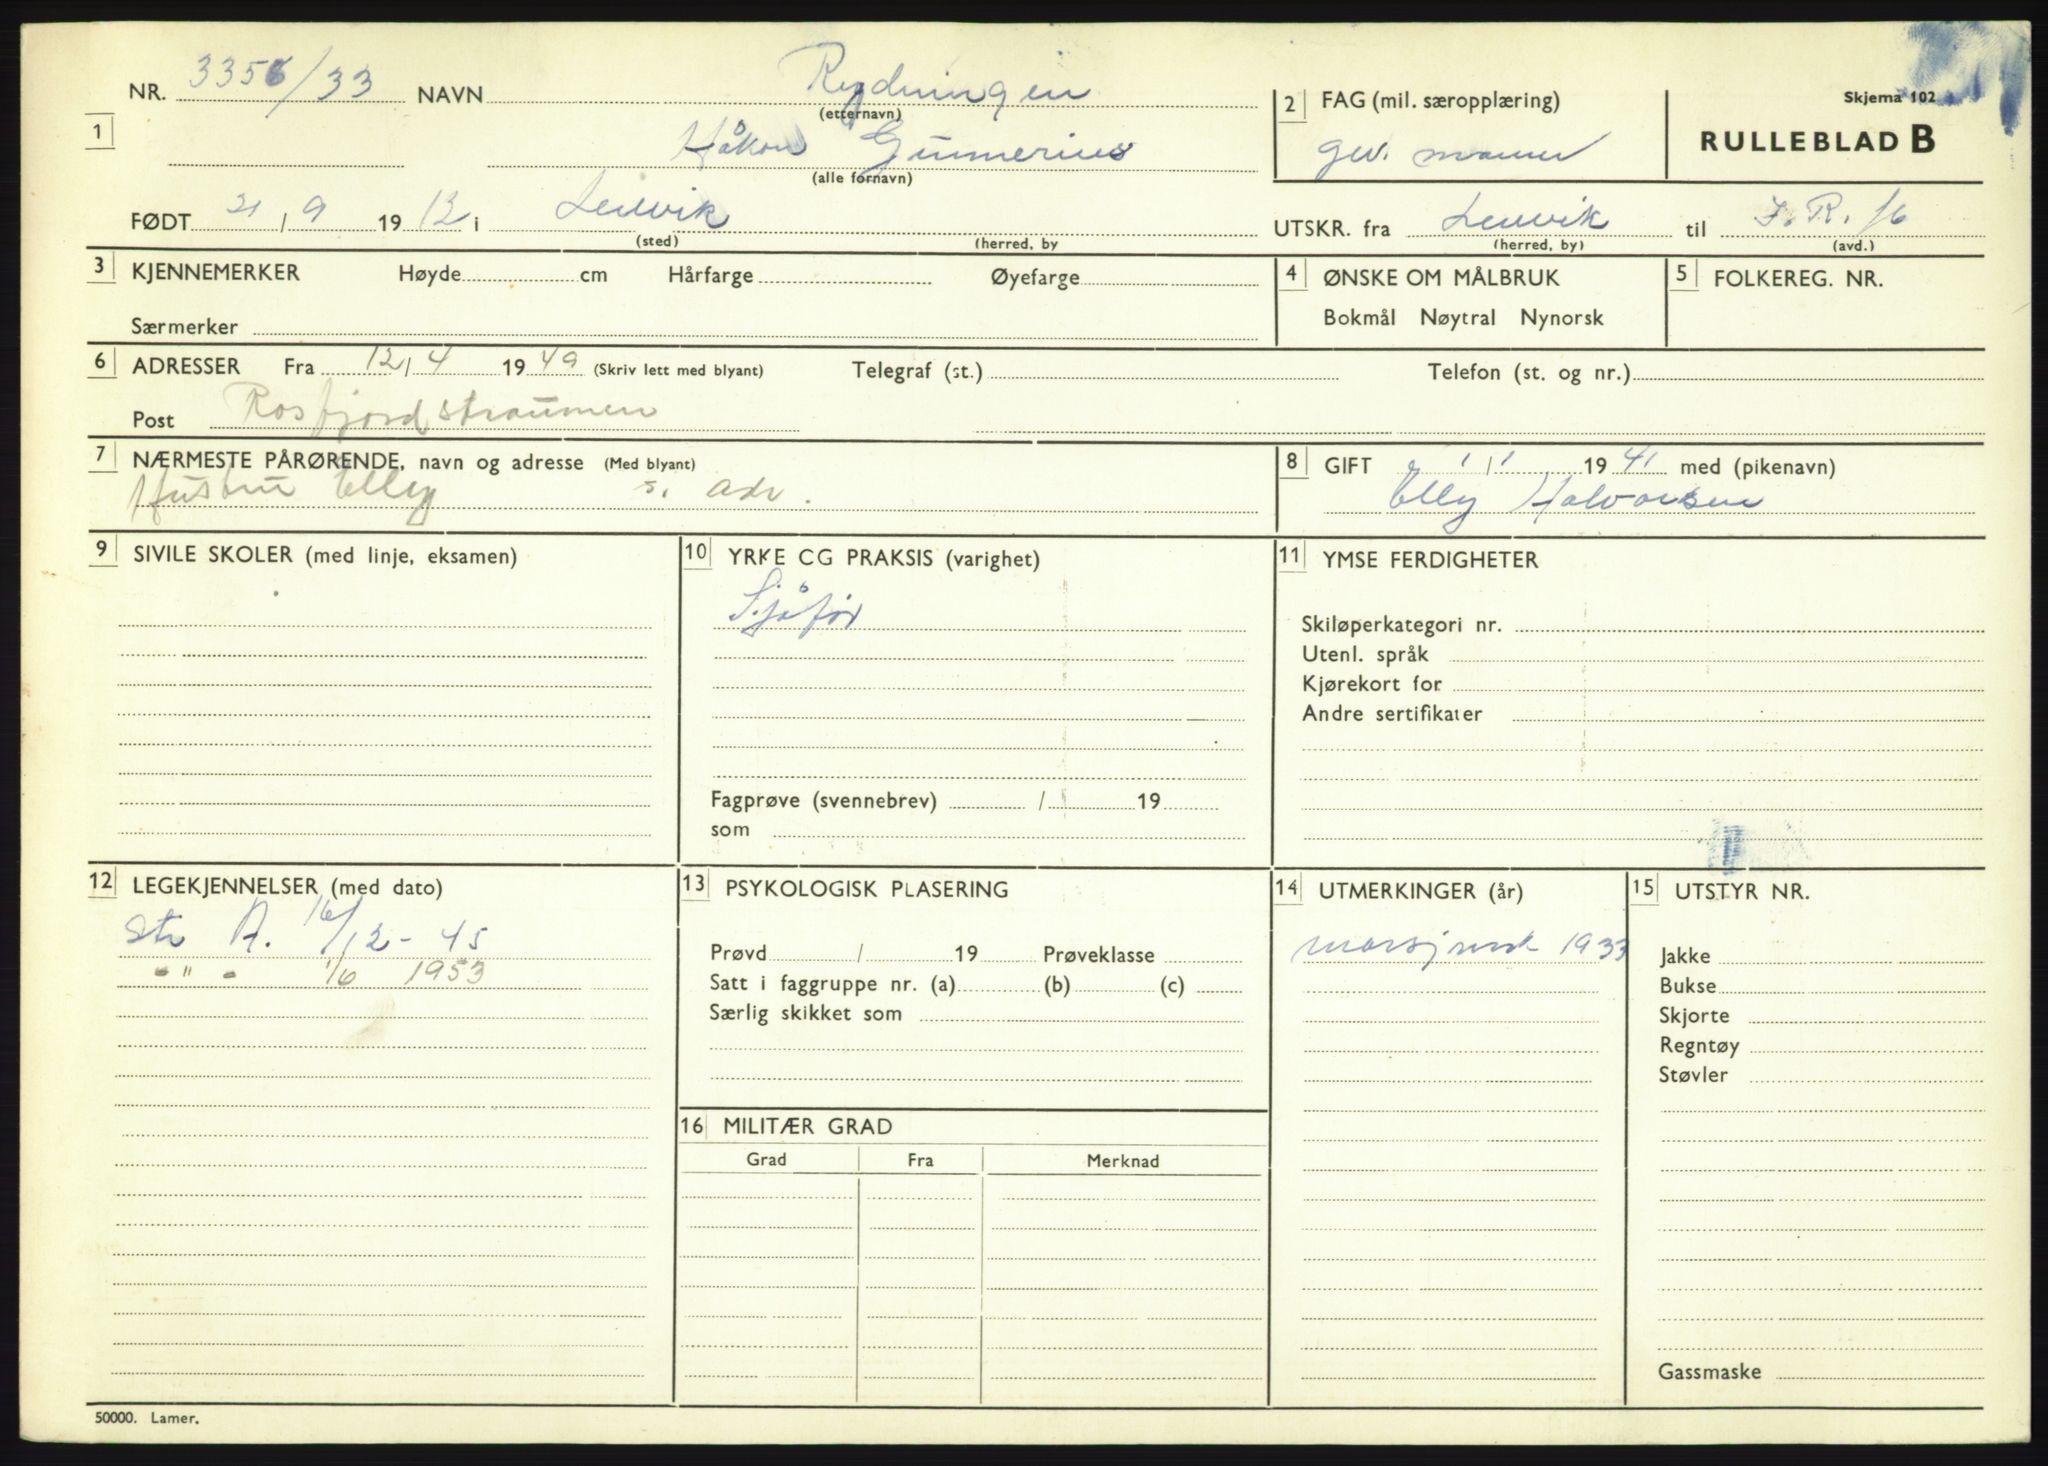 NR. 3356/33 NAVN Rydningen
(etternavn)
1 Håkon Gunnerius
(alle fornavn)
2 FAG (mil. særopplæring)
gev. mann
Skjema 102
RULLEBLAD B
FØDT 21/9 1912 i Lenvik
(sted) (herred, by
UTSKR. fra Lenvik til I.R. 16
(herred, by) (avd.)
3 KJENNEMERKER Høyde cm Hårfarge Øyefarge
Særmerker
4 ØNSKE OM MÅLBRUK
Bokmål Nøytral Nynorsk
5 FOLKEREG. NR.
6 ADRESSER Fra 12/4 1949 (Skriv lett med blyant) Telegraf (st.) Telefon (st. og nr.)
Post Rosfjordstraumen
7 NÆRMESTE PÅRØRENDE, navn og adresse (Med blyant)
Hustru Elly s. adr.
8 GIFT 1/1 1941 med (pikenavn)
Elly Halvorsen
9 SIVILE SKOLER (med linje, eksamen)
10 YRKE CG PRAKSIS (varighet)
Sjåfør
Fagprøve (svennebrev) / 19
som
11 YMSE FERDIGHETER
Skiløperkategori nr.
Utenl. språk
Kjørekort for
Andre sertifikater
12 LEGEKJENNELSER (med dato)
Str A. 16/12-45
- " - 1/6 1953
13 PSYKOLOGISK PLASERING
Prøvd / 19 Prøveklasse
Satt i faggruppe nr. (a) (b) (c)
Særlig skikket som
14 UTMERKINGER (år)
marsjmrk 1933
15 UTSTYR NR.
Jakke
Bukse
Skjorte
Regntøy
Støvler
Gassmaske
16 MILITÆR GRAD
Grad Fra Merknad
50000. Lamer.